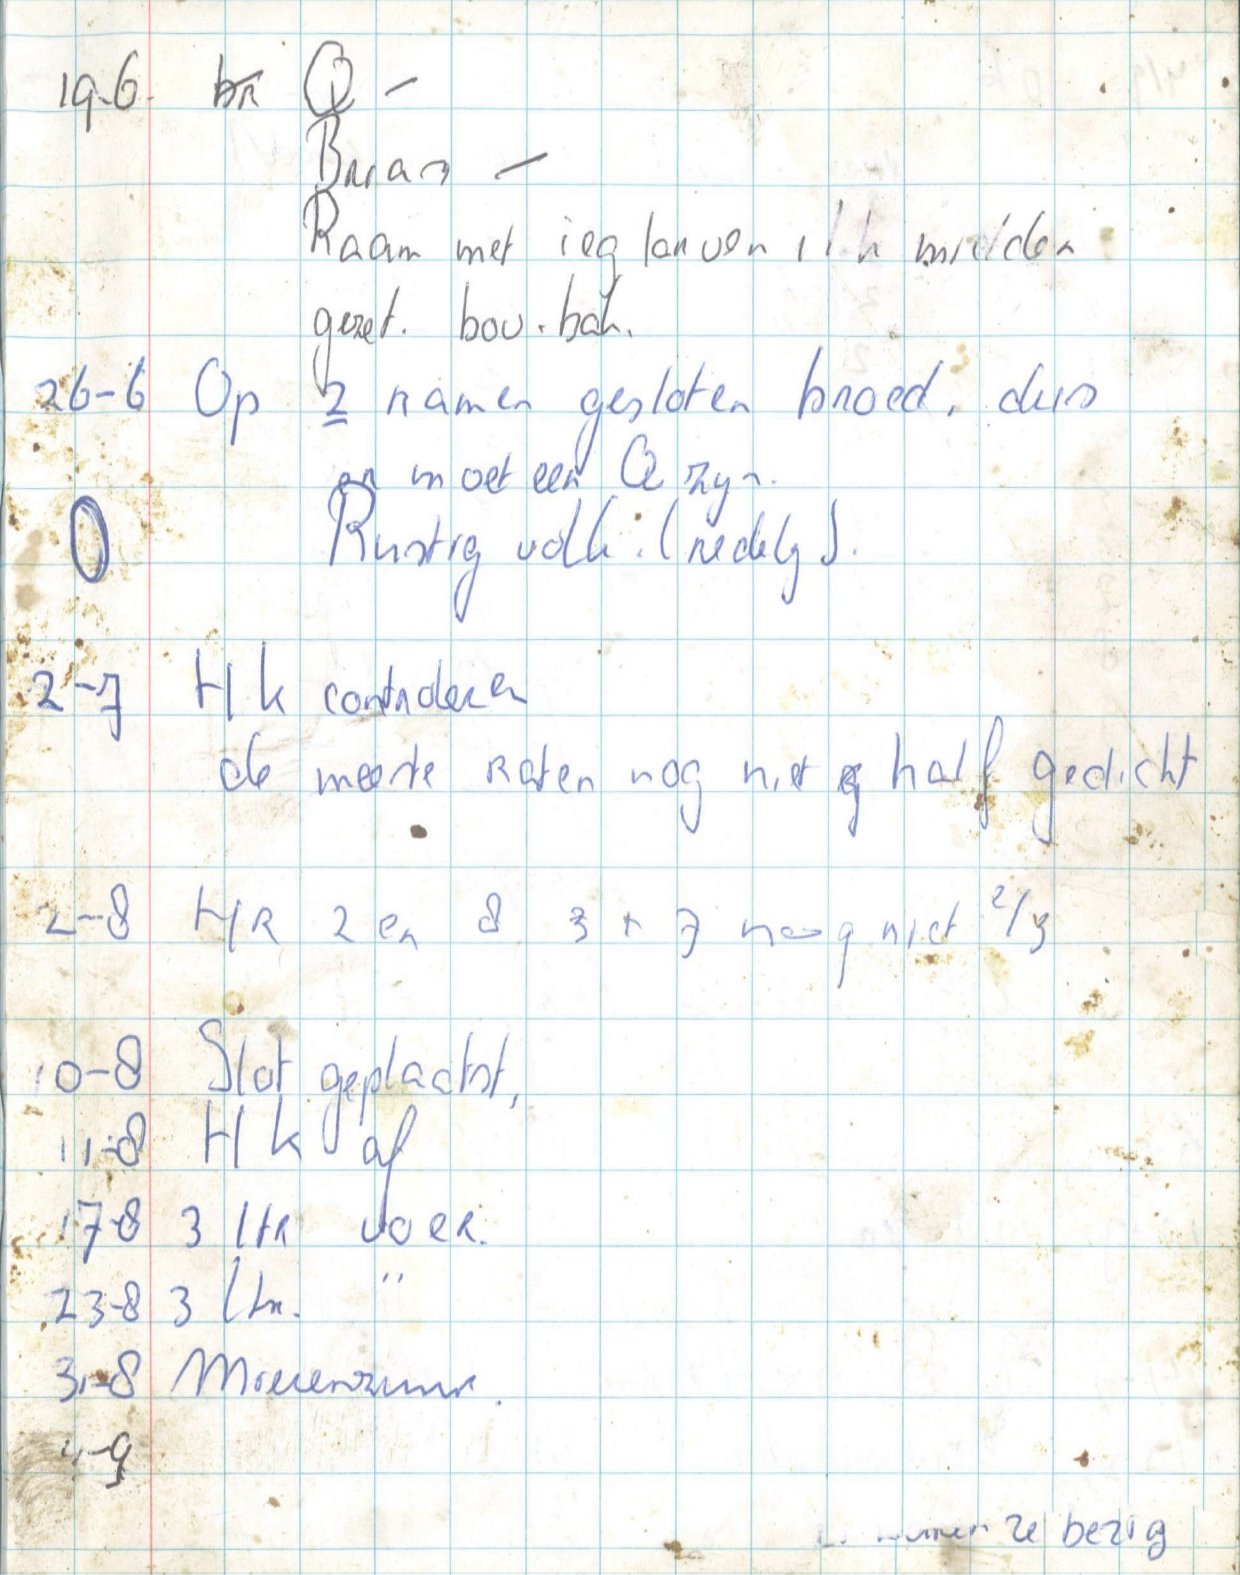 19-6. br Q -
Braam -
Raam met ieg larven i/h midden
gezet. bov. bak.
26-6 Op 2 ramen gesloten broed, dus
er moet een Q zijn.
0 Rustig volk. (redelijk).
2-7 Hk controleren
de meeste raten nog niet half gedicht
2-8 HR 2 en 8 3 + 7 nog niet 2/3
10-8 Slot geplaatst,
11-8 Hk af
17-8 3 ltr voer.
23-8 3 ltr. "
31-8 Mierenzuur.
4-9
ze bezig